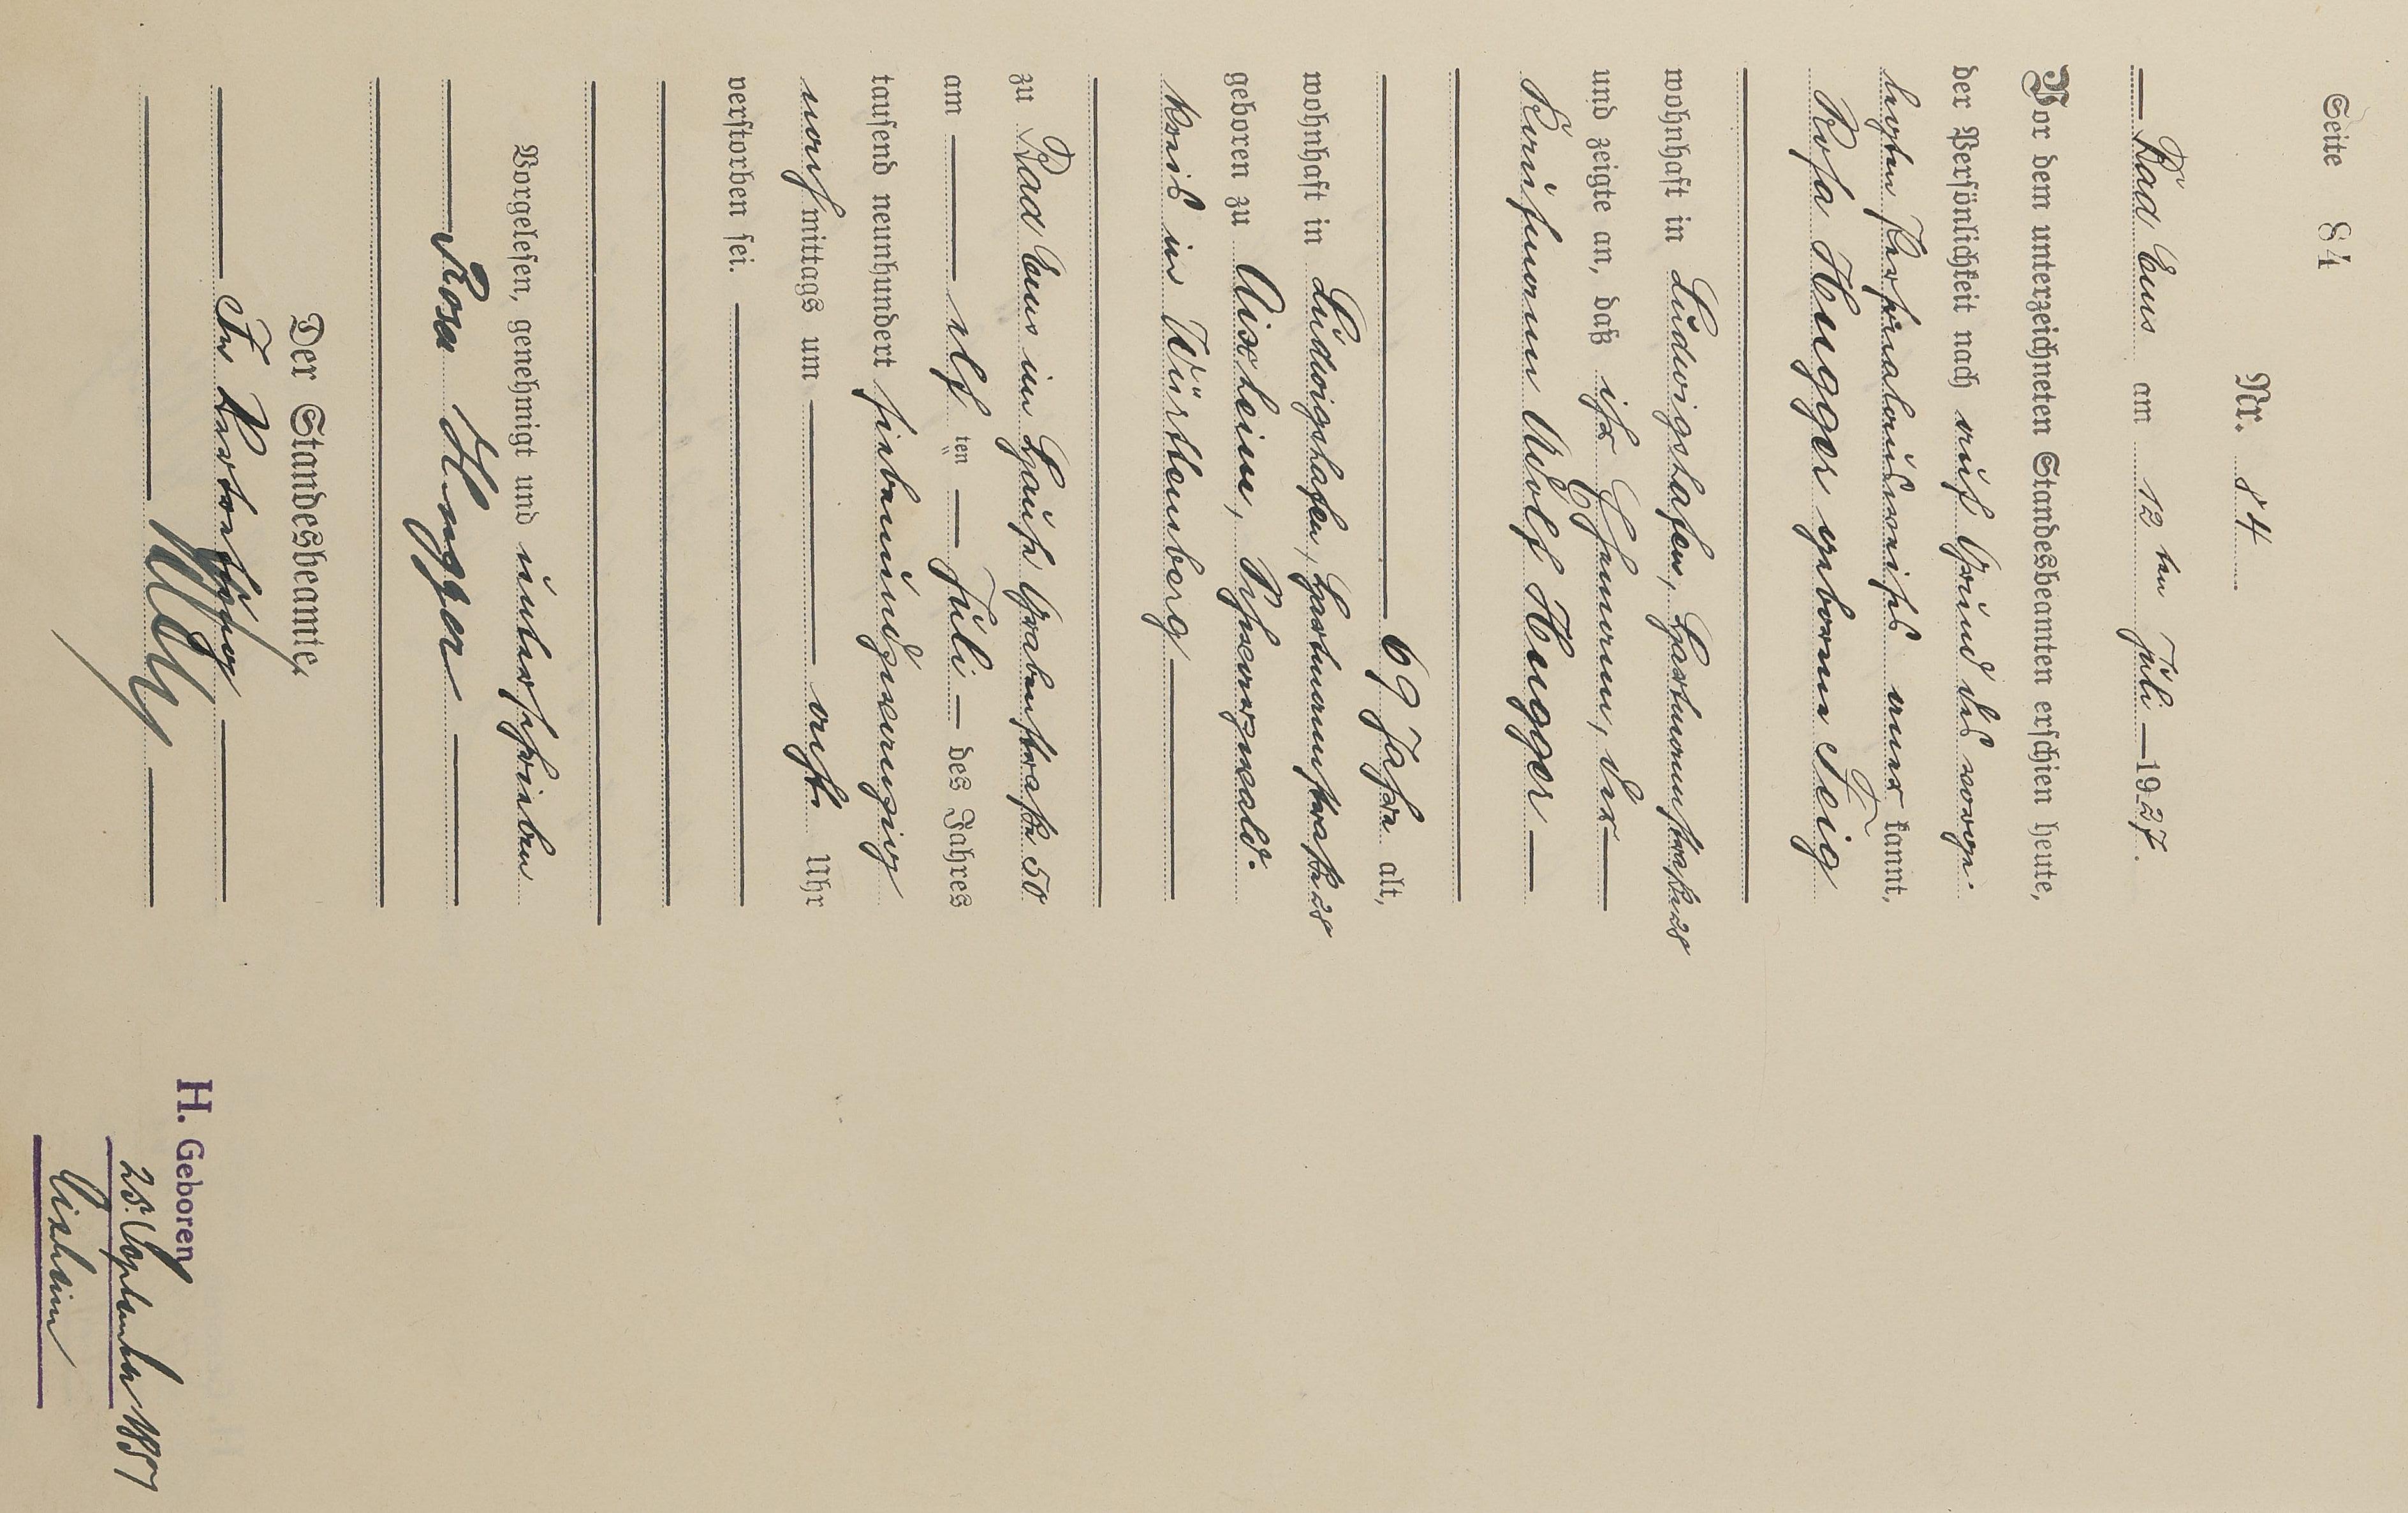 Seite 84
Nr. 84
Bad Ems am 12 ten Juli 1927.
Vor dem unterzeichneten Standesbeamten erschien heute,
der Persönlichkeit nach auf Grund des vorge-
legten Personalausweises aner kannt,
Rosa Hugger geborene Feig
wohnhaft in Ludwigshafen, Hartmannstraße 28
und zeigte an, daß ihr Ehemann, der
Kaufmann Adolf Hugger
69 Jahre alt,
wohnhaft in Ludwigshafen, Hartmannstraße 28
geboren zu Aixheim, Schwarzwald-
kreis in Württemberg
zu Bad Ems im Hause Grabenstraße 50
am elf ten Juli des Jahres
tausend neunhundert siebenundzwanzig
nachmittags um acht Uhr
verstorben sei.
Vorgelesen, genehmigt und unterschrieben
Rosa Hugger
Der Standesbeamte,
In Vertretung
H. Geboren
28. September 1857
Aixheim